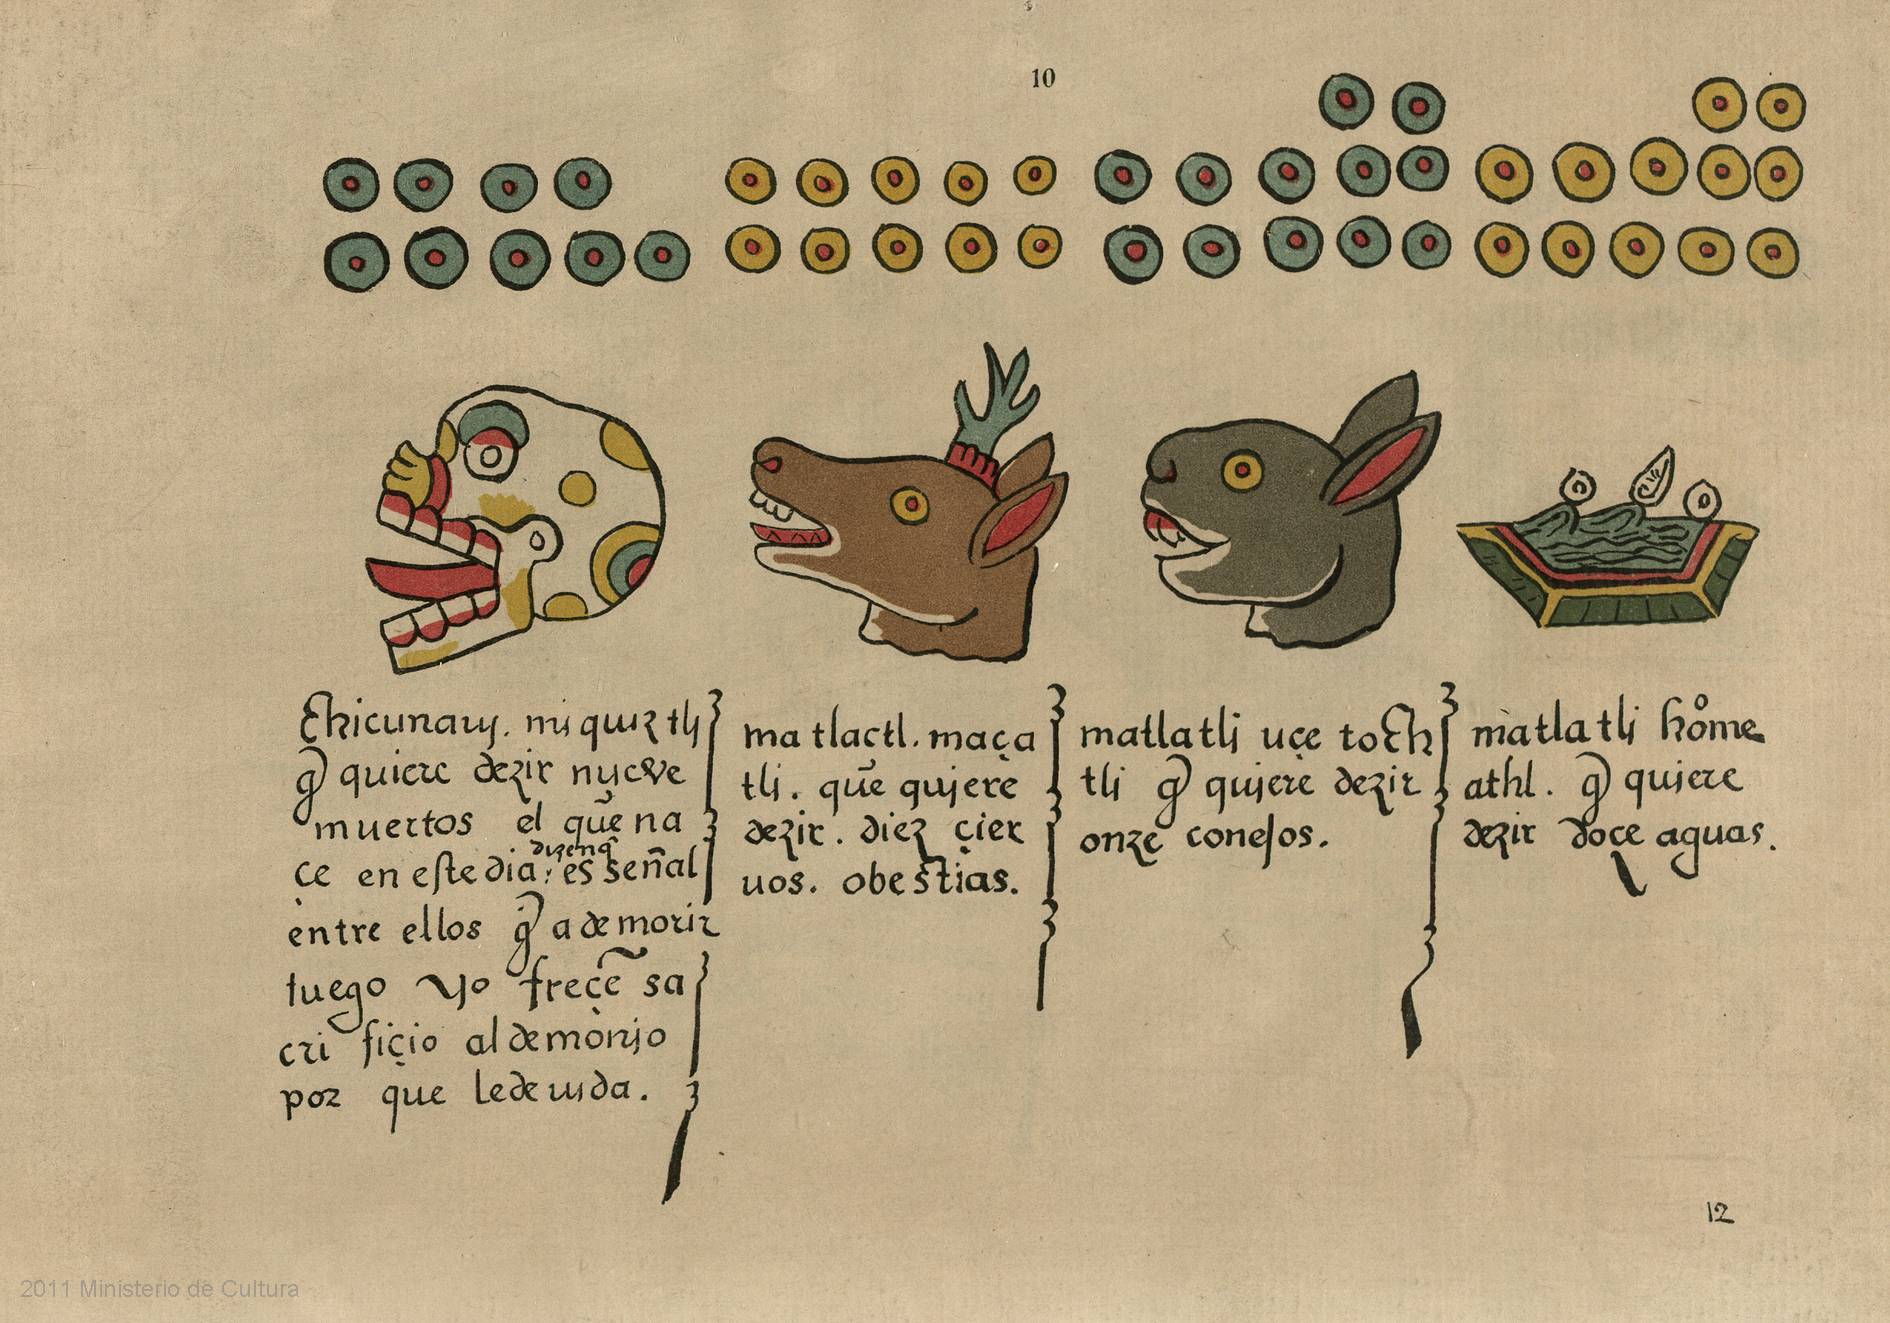 10
Chicunauy. miquiztli
q̃ quiere dezir nueve
muertos el quẽ na
çe en este dia: es señal
dizenq̃
entre ellos q̃ a de morir
luego yo freçẽ sa
cri fiçio al demonjo
por que le de uida.
matlactl. maça
tli. quẽ qujere
dezir. diez çier
uos. obestias.
matlatlj uçe toch
tli q̃ qujere dezir
onze conejos.
matlatlj home
athl. q̃ qujere
dezir doce aguas.
12
2011 Ministerio de Cultura